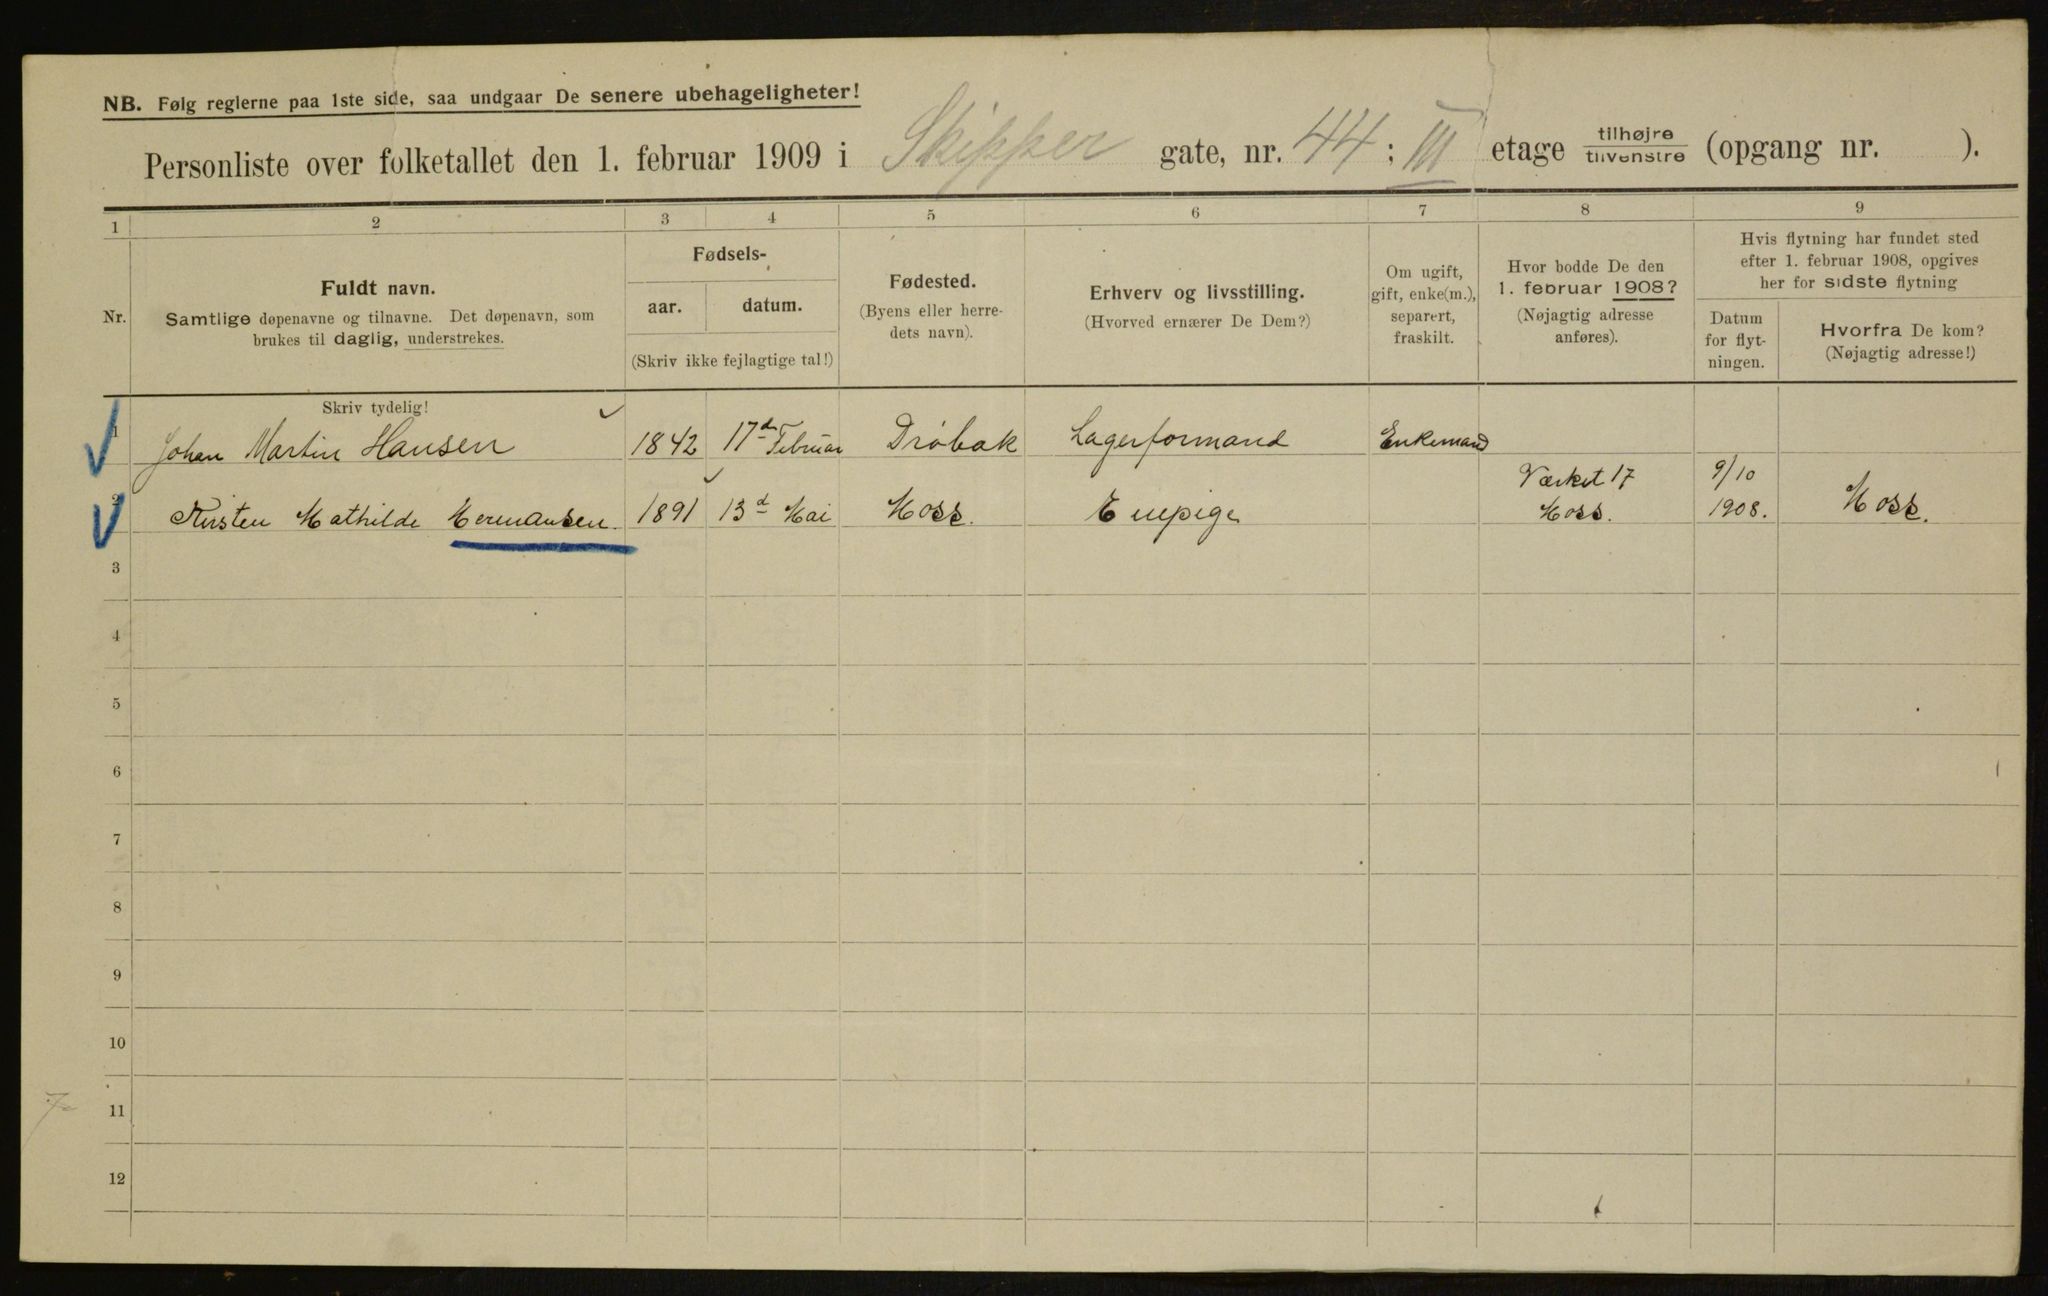 NB. Følg reglerne paa 1ste side, saa undgaar De senere ubehageligheter!
Personliste over folketallet den 1. februar 1909 i Skipper gate, nr. 44 : III etage tilhøjre tilvenstre (opgang nr. ).
1 2 3 4 5 6 7 8 9
Nr.
Fuldt navn.
Samtlige døpenavne og tilnavne. Det døpenavn, som
brukes til daglig, understrekes.
Fødsels-
aar. datum.
(Skriv ikke fejlagtige tal!)
Fødested.
(Byens eller herre-
dets navn).
Erhverv og livsstilling.
(Hvorved ernærer De Dem?)
Om ugift,
gift, enke(m.),
separert,
fraskilt.
Hvor bodde De den
1. februar 1908?
(Nøjagtig adresse
anføres).
Hvis flytning har fundet sted
efter 1. februar 1908, opgives
her for sidste flytning
Datum
for flyt-
ningen.
Hvorfra De kom?
(Nøjagtig adresse!)
Skriv tydelig!
1 Johan Martin Hansen 1842 17d Februar Drøbak Lagerformand Enkemand
2 Kirsten Mathilde Hermansen. 1891 13d Mai Moss. Værket 17 Moss. 9/10 1908. Moss.
3
4
5
6
7
8
9
10
11
12